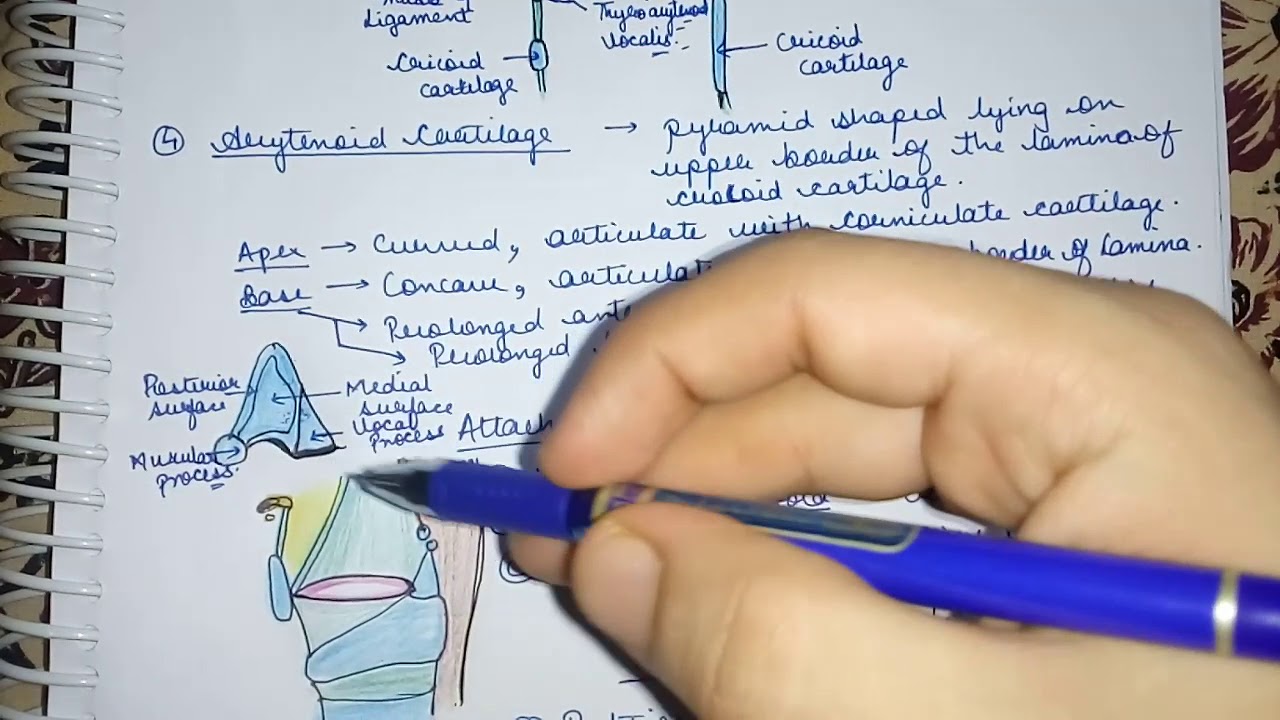 Ligament
Thyroarytenoid
vocalis
Cricoid
cartilage
Cricoid
cartilage
④ Arytenoid Cartilage → pyramid shaped lying on
upper border of the lamina of
cricoid cartilage.
Apex → Curved, articulate with corniculate cartilage.
Base → Concave, articulat border of lamina.
Prolonged ant
Prolonged
Posterior
surface
Medial
surface
Vocal
process
Muscular
process
Attach